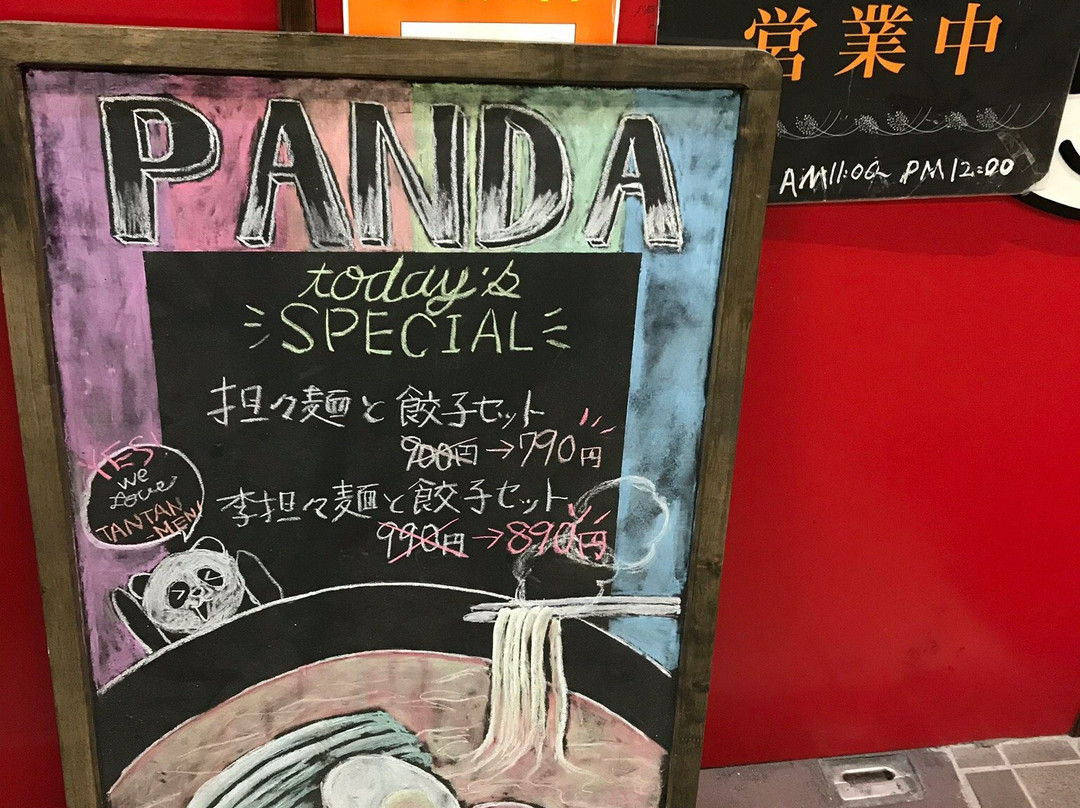 PANDA
today's
SPECIAL
担々麺と餃子セット
900円→790円
李担々麺と餃子セット
990円→890円
YES!
we
Love
TANTAN
-MEN!
営業中
AM11:00~PM12:00